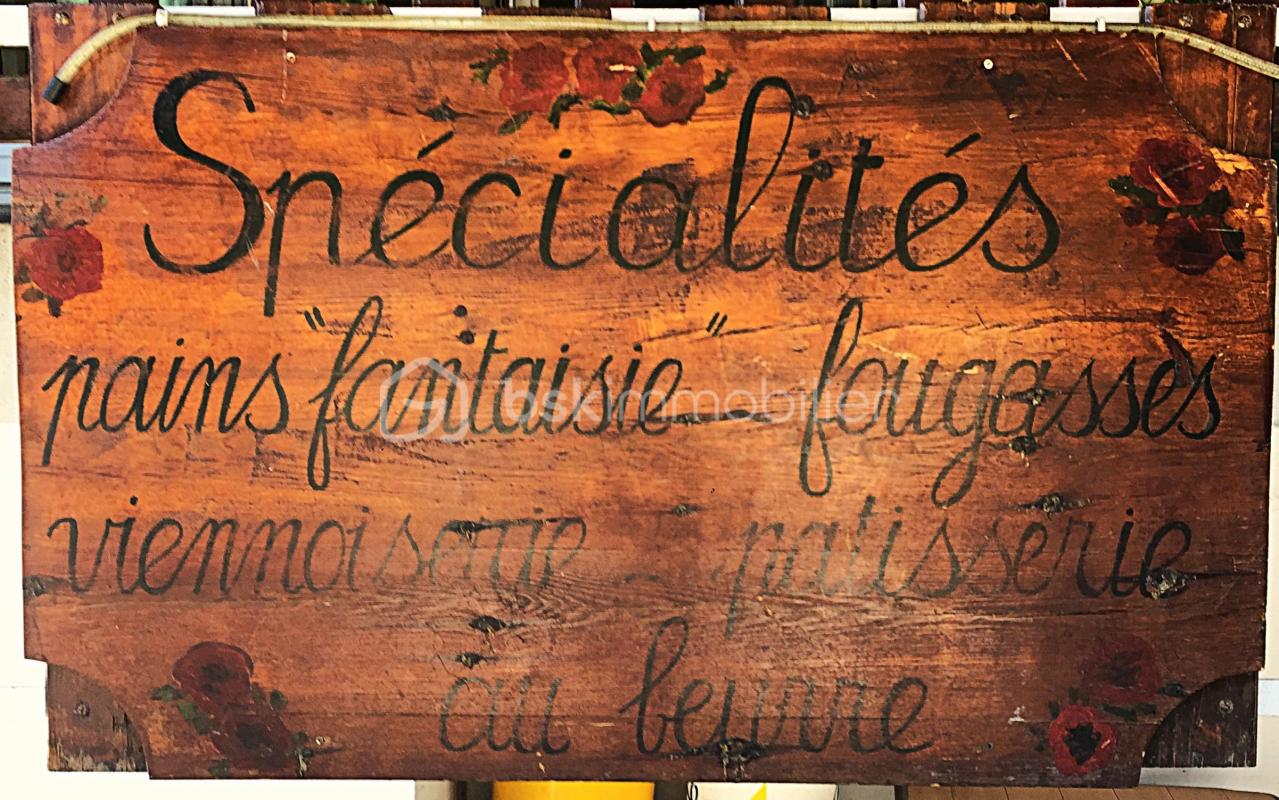 Spécialités
pains "fantaisie" - fougasses
viennoiserie - patisserie
au beurre
bskimmobilier